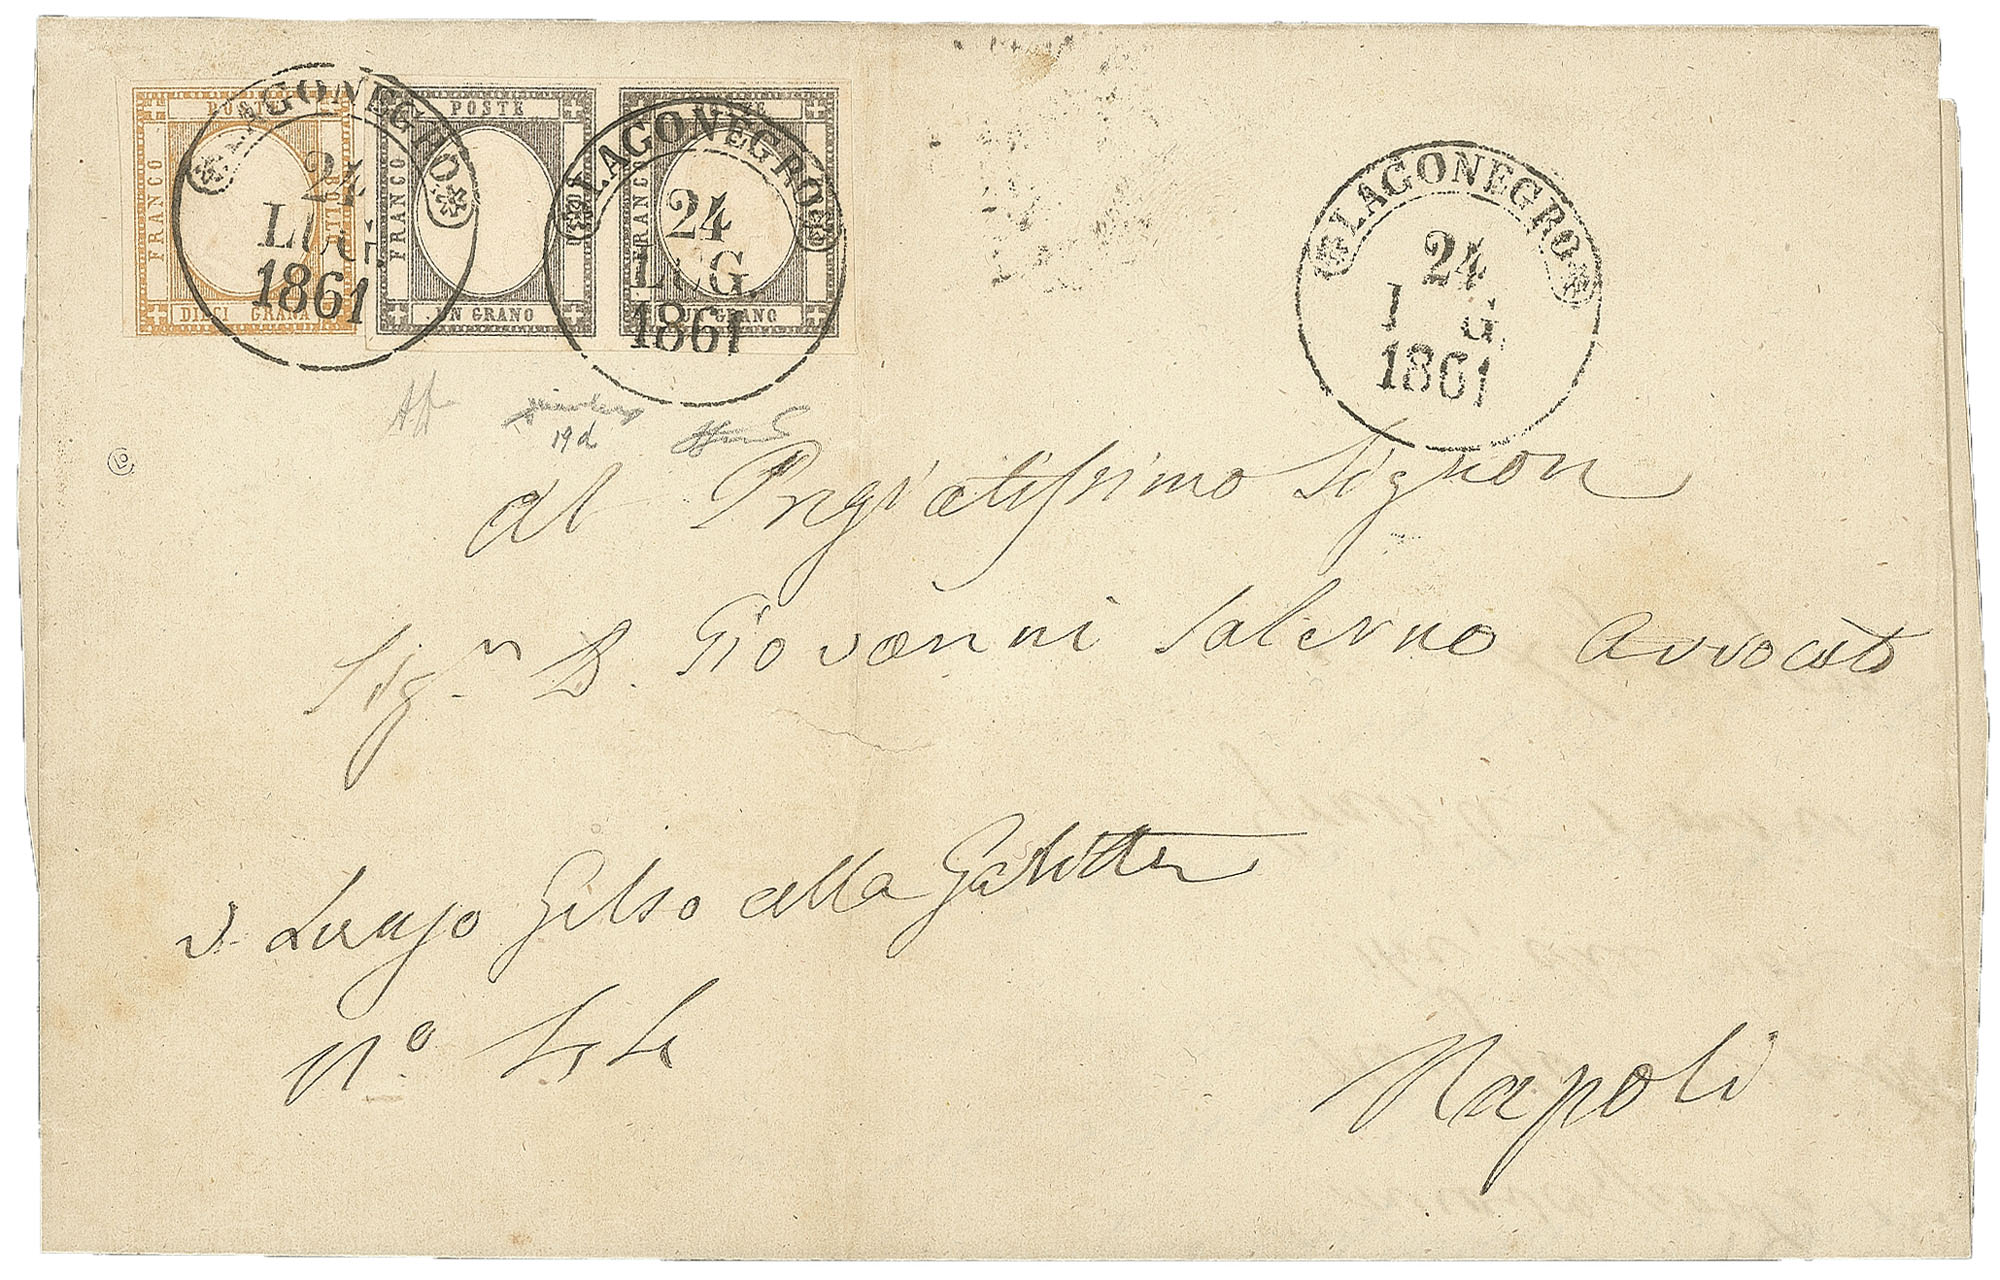 POSTE
FRANCO
BOLLO
DIECI GRANA
POSTE
FRANCO
BOLLO
UN GRANO
POSTE
FRANCO
UN GRANO
LAGONEGRO
24
LUG.
1861
LAGONEGRO
24
LUG.
1861
LAGONEGRO
24
L G.
1861
19d
Al Pregiatissimo Signor
Sigr. D. Giovanni Salerno Avvocato
V. Lungo Gelso alla
No.
Napoli